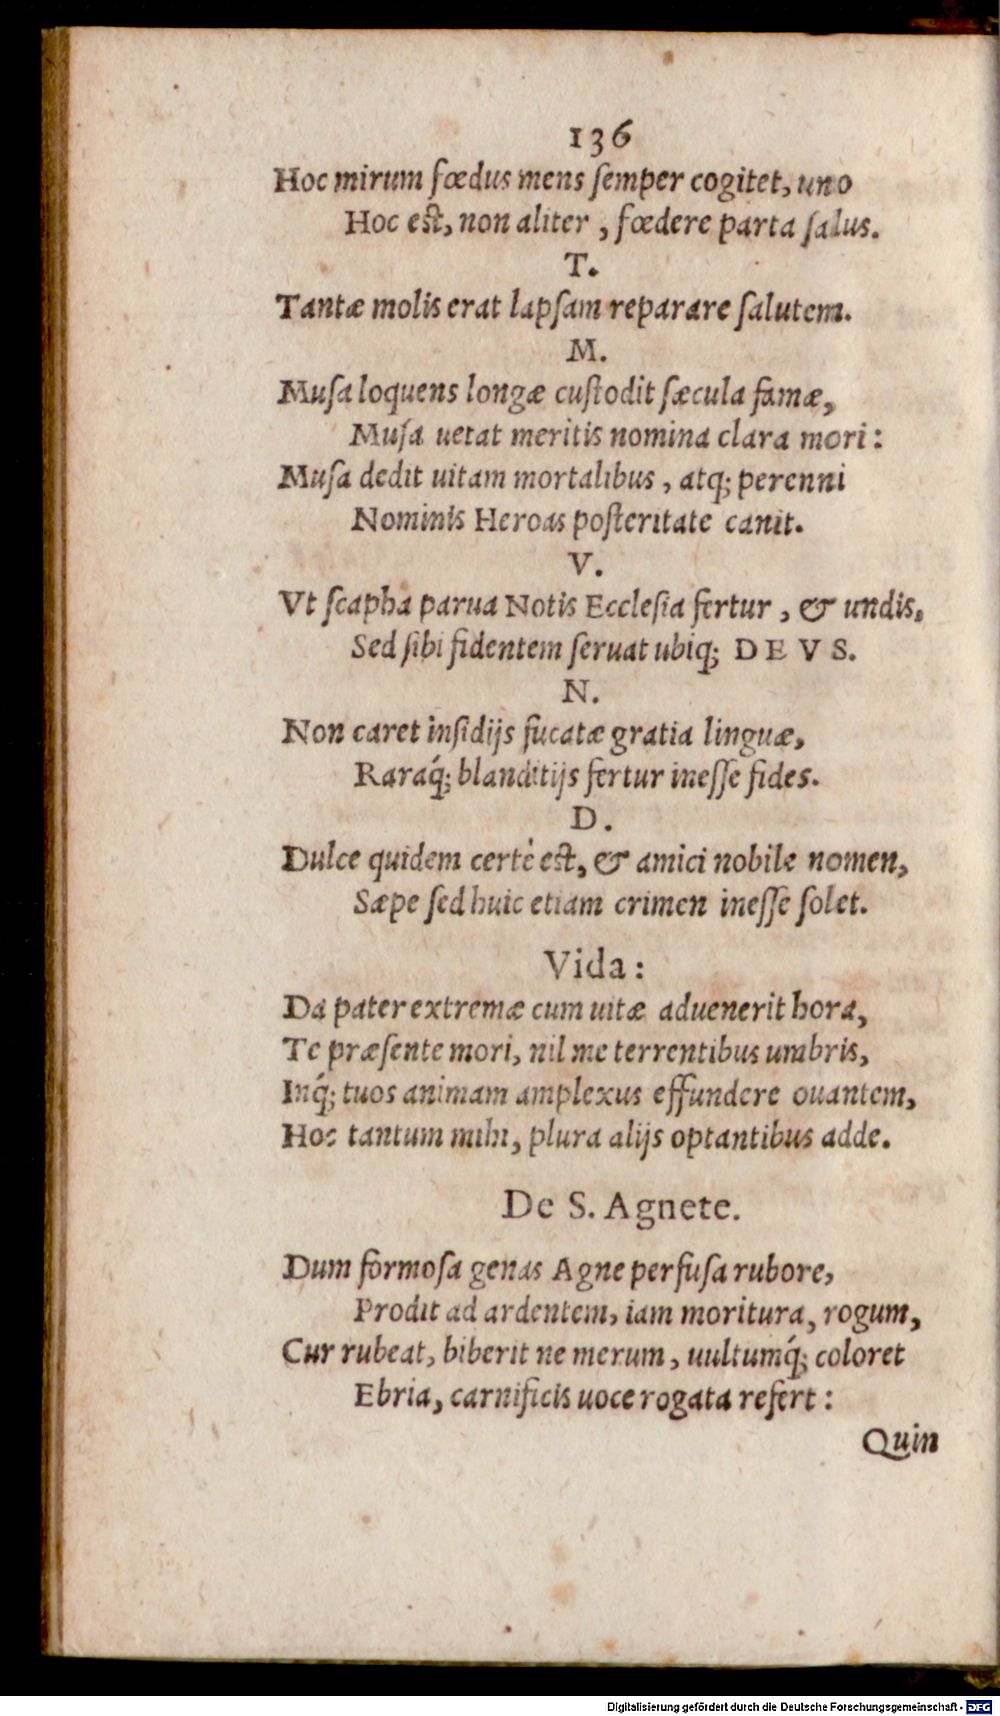 136
Hoc mirum fœdus mens ſemper cogitet, uno
Hoc eſt, non aliter, fœdere parta ſalus.
T.
Tantæ molis erat lapſam reparare ſalutem.
M.
Muſa loquens longæ cuſtodit ſæcula famæ,
Muſa uetat meritis nomina clara mori:
Muſa dedit uitam mortalibus, atq; perenni
Nominis Heroas poſteritate canit.
V.
Vt ſcapha parua Notis Eccleſia fertur, & undis,
Sed ſibi fidentem ſeruat ubiq; DEVS.
N.
Non caret inſidijs fucatæ gratia linguæ,
Raraq́; blanditijs fertur ineſſe fides.
D.
Dulce quidem certè eſt, & amici nobile nomen,
Sæpe ſed huic etiam crimen ineſſe ſolet.
Vida:
Da pater extremæ cum uitæ aduenerit hora,
Te præſente mori, nil me terrentibus umbris,
Inq́; tuos animam amplexus effundere ouantem,
Hoc tantum mihi, plura alijs optantibus adde.
De S. Agnete.
Dum formoſa genas Agne perfuſa rubore,
Prodit ad ardentem, iam moritura, rogum,
Cur rubeat, biberit ne merum, uultumq́; coloret
Ebria, carnificis uoce rogata refert:
Quin
Digitalisierung gefördert durch die Deutsche Forschungsgemeinschaft - DFG